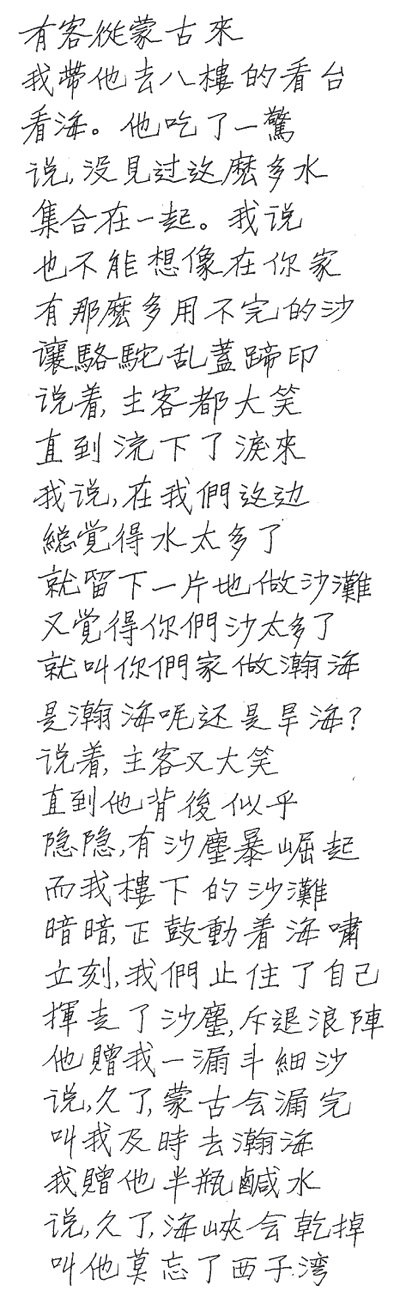 有客從蒙古來
我帶他去八樓的看台
看海。他吃了一驚
说,没見过这麽多水
集合在一起。我说
也不能想像在你家
有那麽多用不完的沙
讓駱駝乱蓋蹄印
说着,主客都大笑
直到流下了淚來
我说,在我們这边
總覺得水太多了
就留下一片地做沙灘
又覺得你們沙太多了
就叫你們家做瀚海
是瀚海呢还是旱海?
说着,主客又大笑
直到他背後似乎
隐隐,有沙塵暴崛起
而我樓下的沙灘
暗暗,正鼓動着海嘯
立刻,我們止住了自己
揮走了沙塵,斥退浪陣
他贈我一漏斗細沙
说,久了,蒙古会漏完
叫我及時去瀚海
我贈他半瓶鹹水
说,久了,海峽会乾掉
叫他莫忘了西子湾